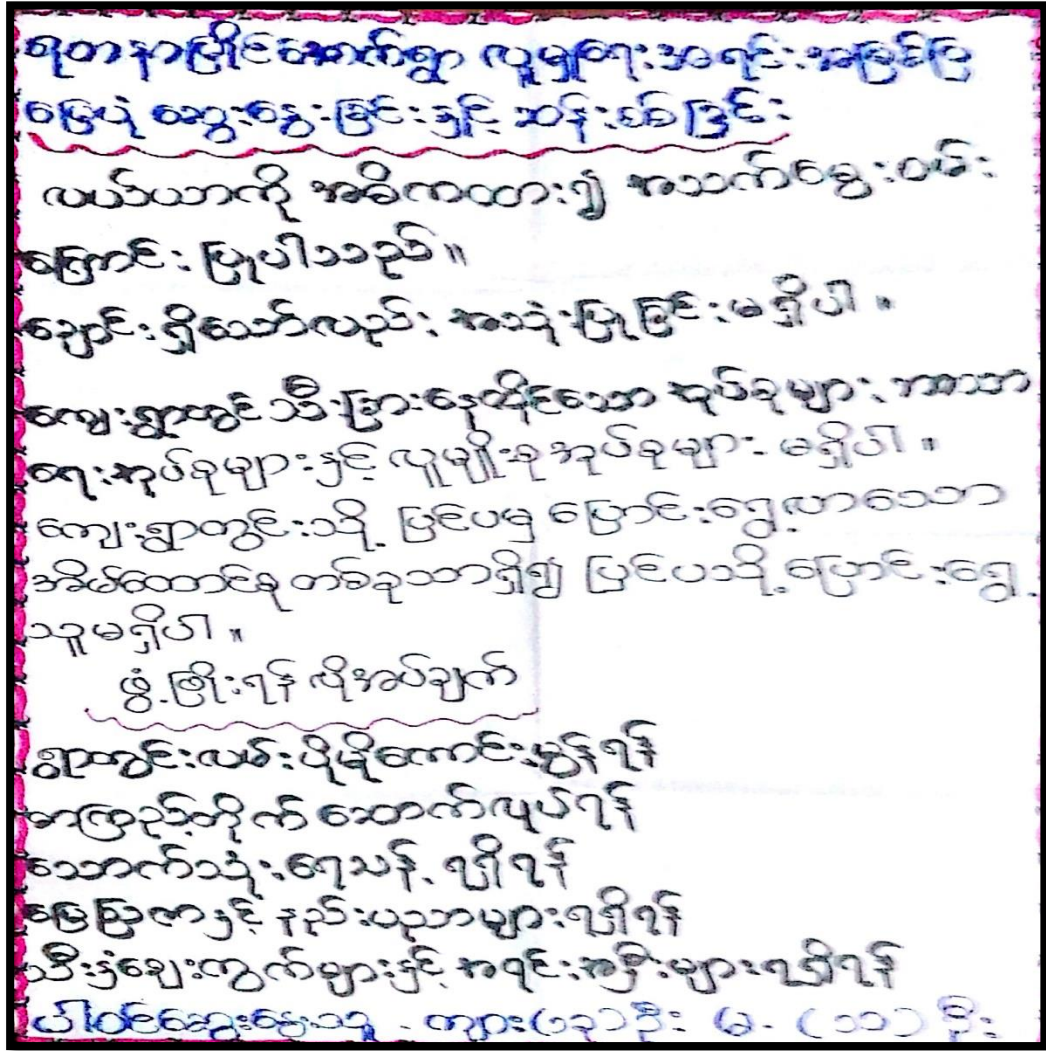 ရတနာမြိုင်အောက်ရွာ လူမှုရေးအရင်းအမြစ်ပြ
မြေပုံ ဆွေးနွေးခြင်းနှင့် ဆန်းစစ်ခြင်း
လယ်ယာကို အဓိကထား၍ အသက်မွေးဝမ်း
ကြောင်း ပြုပါသည်။
ချောင်းရှိသော်လည်း အသုံးပြုခြင်းမရှိပါ။
ကျေးရွာတွင် သီးခြားနေထိုင်သော အုပ်စုများ, ဘာသာ
ရေးအုပ်စုများနှင့် လူမျိုးစုအုပ်စုများ မရှိပါ။
ကျေးရွာတွင်းသို့ ပြင်ပမှ ပြောင်းရွှေ့လာသော
အိမ်ထောင်စု တစ်စုသာရှိ၍ ပြင်ပသို့ ပြောင်းရွှေ့
သူမရှိပါ။
ဖွံ့ဖြိုးရန် လိုအပ်ချက်
ရွာတွင်းလမ်းပိုမိုကောင်းမွန်ရန်
စာကြည့်တိုက် ဆောက်လုပ်ရန်
သောက်သုံးရေသန့် ရရှိရန်
မြေဩဇာနှင့် နည်းပညာများရရှိရန်
သီးနှံချေးငွေများနှင့် အရင်းအနှီးများရရှိရန်
ပါဝင်ဆွေးနွေးသူ - ကျား(၁၃)ဦး မ - (၁၁) ဦး